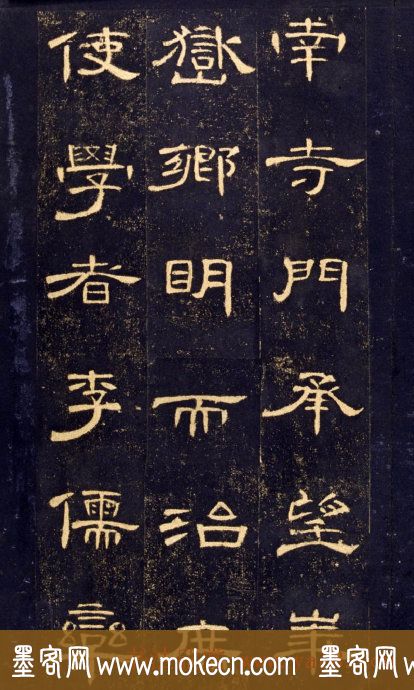 南寺門承望華
嶽鄉明而治庶
使學者李儒欒
墨客网 www.mokecn.com 墨客网 w